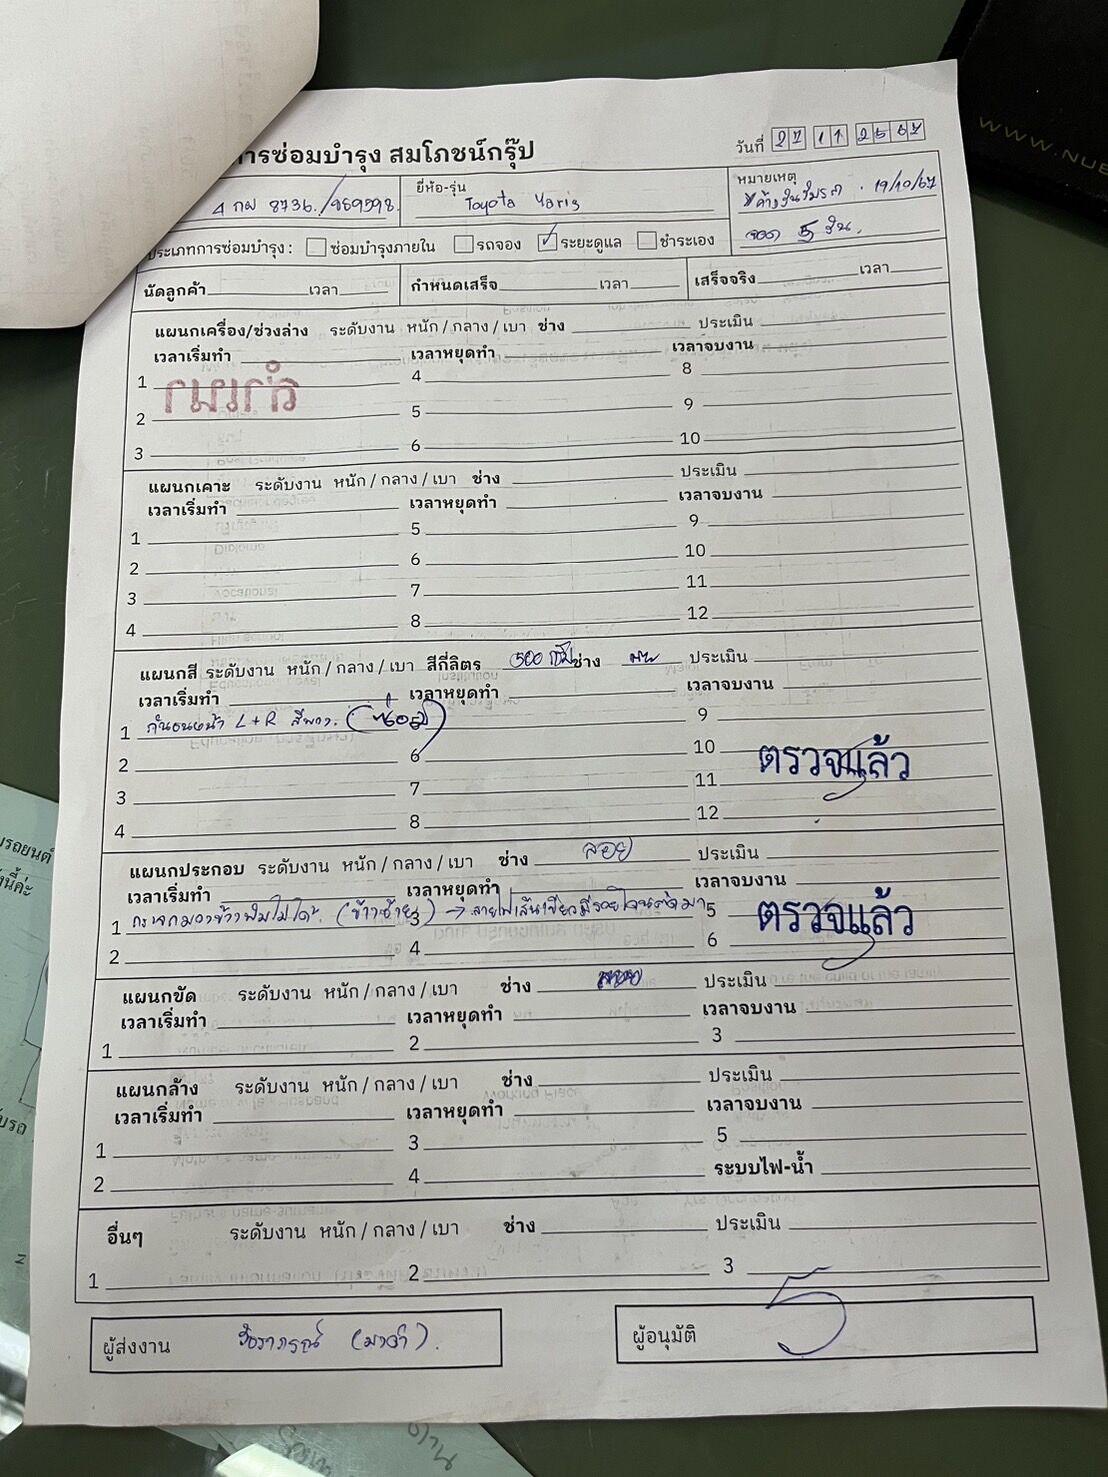 การซ่อมบำรุง สมโภชน์กรุ๊ป
วันที่ 27 11 2567
4 กผ 8736./
ยี่ห้อ-รุ่น Toyota Yaris
หมายเหตุ
19/10/67
จอด 5 วัน.
ประเภทการซ่อมบำรุง : ซ่อมบำรุงภายใน รถจอง ✓ ระยะดูแล ชำระเอง
นัดลูกค้า เวลา กำหนดเสร็จ เวลา เสร็จจริง เวลา
แผนกเครื่อง/ช่วงล่าง ระดับงาน หนัก / กลาง / เบา ช่าง ประเมิน
เวลาเริ่มทำ เวลาหยุดทำ เวลาจบงาน
1 4 8
2 5 9
3 6 10
แผนกเคาะ ระดับงาน หนัก / กลาง / เบา ช่าง ประเมิน
เวลาเริ่มทำ เวลาหยุดทำ เวลาจบงาน
1 5 9
2 6 10
3 7 11
4 8 12
แผนกสี ระดับงาน หนัก / กลาง / เบา สีกี่ลิตร 500 ช่าง ประเมิน
เวลาเริ่มทำ เวลาหยุดทำ เวลาจบงาน
1 กันชนหน้า L+R สีพอง. (ซ่อม) 9
2 6 10
3 7 11 ตรวจแล้ว
4 8 12
แผนกประกอบ ระดับงาน หนัก / กลาง / เบา ช่าง ลอย ประเมิน
เวลาเริ่มทำ เวลาหยุดทำ เวลาจบงาน
1 กระจกมองข้างพับไม่ได้. (ข้างซ้าย) 3 → สายไฟเส้นเขียวมีรอยโดนตัดมา 5
2 4 6 ตรวจแล้ว
แผนกขัด ระดับงาน หนัก / กลาง / เบา ช่าง ประเมิน
เวลาเริ่มทำ เวลาหยุดทำ เวลาจบงาน
1 2 3
แผนกล้าง ระดับงาน หนัก / กลาง / เบา ช่าง ประเมิน
เวลาเริ่มทำ เวลาหยุดทำ เวลาจบงาน
1 3 5
2 4 ระบบไฟ-น้ำ
อื่นๆ ระดับงาน หนัก / กลาง / เบา ช่าง ประเมิน
1 2 3
ผู้ส่งงาน
ผู้อนุมัติ
WWW.NUE